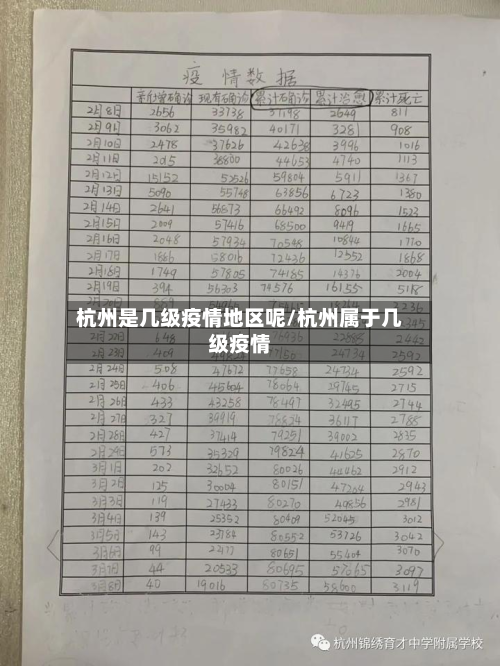 疫情数据
新增确诊 现有确诊 累计确诊 累计治愈 累计死亡
2月8日 2656 33738 37198 2649 811
2月9日 3062 35982 40171 3281 908
2月10日 2478 37626 42638 3996 1016
2月11日 2015 38800 44653 4740 1113
2月12日 15152 52526 59804 5911 1367
2月13日 5090 55748 63856 6723 1380
2月14日 2641 56573 66492 8096 1523
2月15日 2009 57416 68500 9419 1665
2月16日 2048 57934 70548 10844 1770
2月17日 1886 58016 72436 12552 1868
2月18日 1749 57805 74185 14376 2004
2月19日 394 56303 74576 16155 5118
杭州是几级疫情地区呢/杭州属于几
级疫情
2月24日 508 47672 77658 24734 2592
2月25日 406 45604 78064 29745 2715
2月26日 433 43258 78497 32495 2744
2月27日 327 39919 78824 36117 2788
2月28日 427 37414 79251 39002 2835
2月29日 573 35329 79824 41625 2870
3月1日 202 32652 80026 44462 2912
3月2日 125 30004 80151 47204 2943
3月3日 119 27433 80270 40856 2981
3月4日 139 25352 80409 52045 3012
3月5日 143 23784 80552 53726 3042
3月6日 99 80651 55404 3070
3月7日 44 20533 80695 57065 3097
3月8日 40 19016 80735 58600 3119
杭州锦绣育才中学附属学校